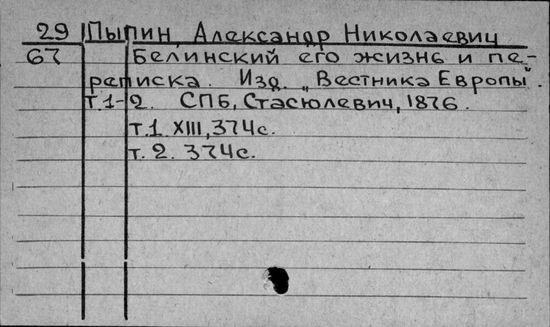 29 Пыпин, Александр Николаевич
67 Белинский его жизнь и пе-
реписка. Изд. „Вестника Европы".
т 1-2. СПБ, Стасюлевич, 1876.
т.1 XIII, 374с.
т. 2. 374с.